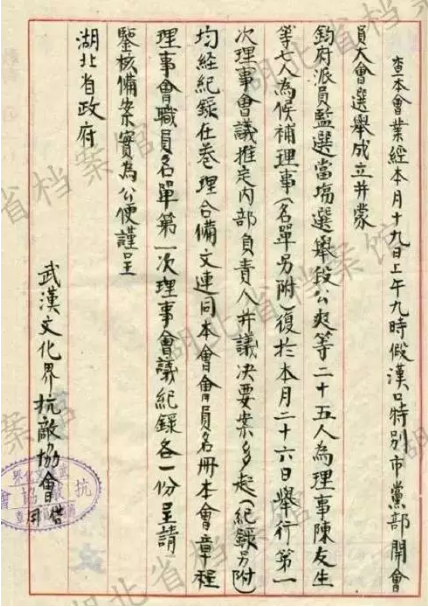 查本會業經本月十九日上午九時假漢口特別市黨部開會
員大會選舉成立并蒙
鈞府派員監選當場選舉段公爽等二十五人為理事陳友生
等七人為候補理事(名單另附)復於本月二十六日舉行第一
次理事會議推定內部負責人并議決要案多起(紀錄另附)
均經紀錄在卷理合備文連同本會會員名冊本會章程
理事會職員名單第一次理事會議紀錄各一份呈請
鑒核備案實為公便謹呈
湖北省政府
武漢文化界抗敵協會
湖北省档案馆